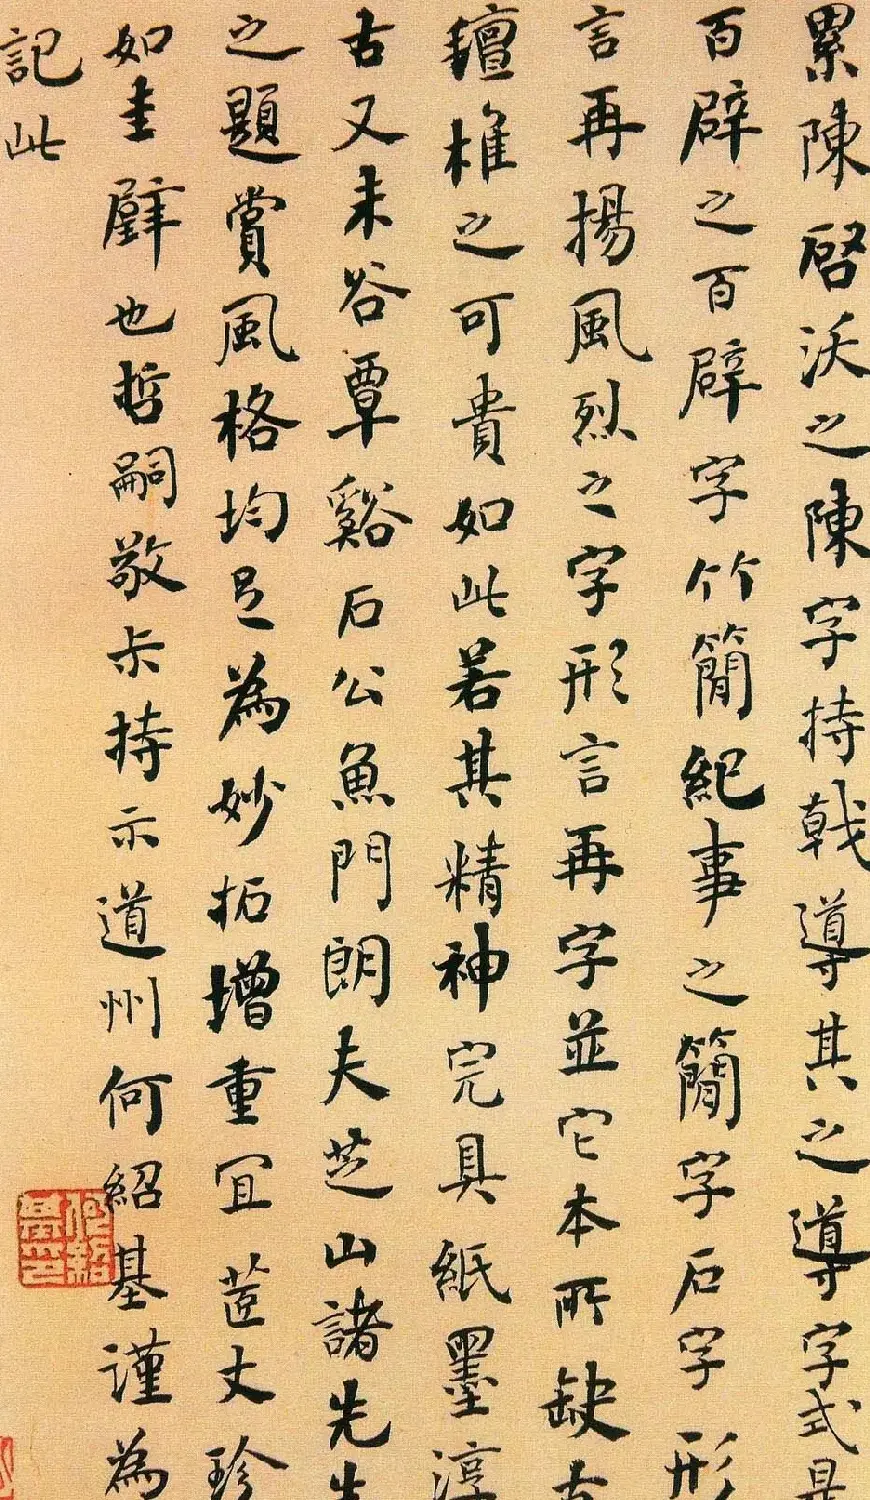 累陳啓沃之陳字持戟導其之導字式是
百辟之百辟字竹簡紀事之簡字后字形
言再揚風烈之字形言再字並它本所缺古
氊椎之可貴如此若其精神完具紙墨淳
古又未谷覃谿石公魚門朗夫芝山諸先生
之題賞風格均足為妙拓增重宜莚丈珍
如圭璧也哲嗣敬尗持示道州何紹基謹為
記此